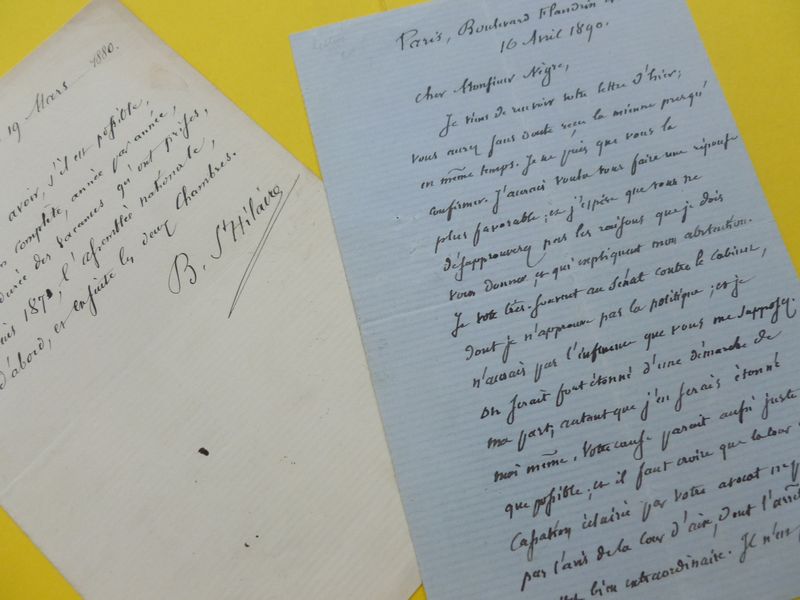 19 Mars 1880.
avoir, s'il est possible,
complète, année par année,
durée des vacances qu'ont prises,
depuis 1871, l'Assemblée nationale,
d'abord, et ensuite les deux Chambres.
B. St Hilaire
Paris, Boulevard Flandrin
16 Avril 1890.
Cher Monsieur Nègre,
Je viens de recevoir votre lettre d'hier;
vous aurez sans doute reçu la mienne presqu'
en même temps. Je ne puis que vous la
confirmer. J'aurais voulu vous faire une réponse
plus favorable; et j'espère que vous ne
désapprouverez pas les raisons que je dois
vous donner, et qui expliquent mon abstention.
Je vote très-souvent au Sénat contre le cabinet,
dont je n'approuve pas la politique; et je
n'aurais pas l'influence que vous me supposez.
On serait fort étonné d'une démarche de
ma part, autant que j'en serais étonné
moi même. Votre cause parait aussi juste
que possible; et il faut croire que la Cour
Cassation éclairée par votre avocat
par l'avis de la Cour d'aix, dont l'arrêt
est bien extraordinaire. Je n'en